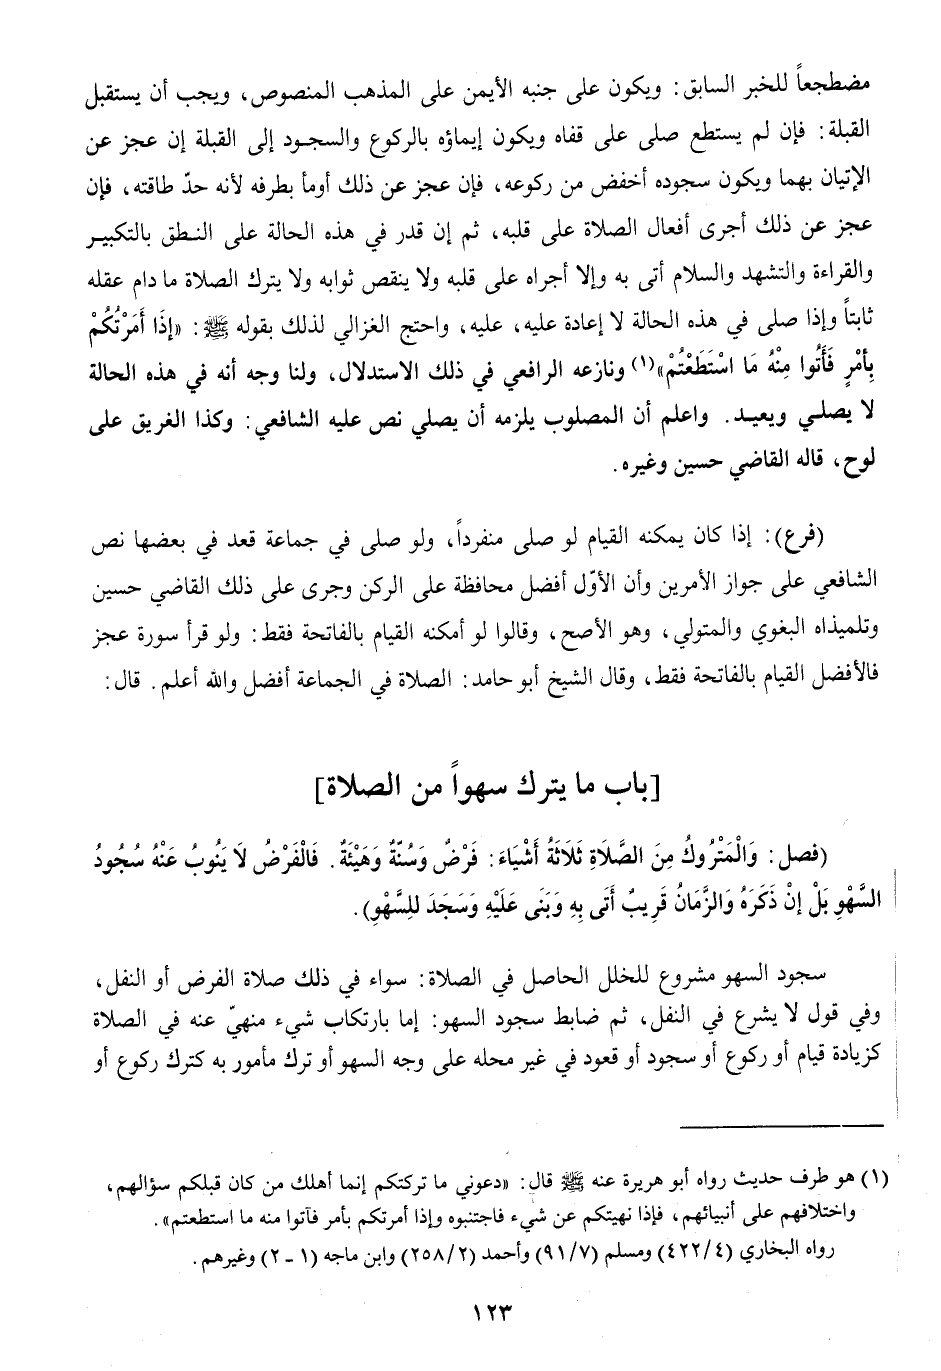 مضطجعاً للخبر السابق: ويكون على جنبه الأيمن على المذهب المنصوص، ويجب أن يستقبل
القبلة: فإن لم يستطع صلى على قفاه ويكون إيماؤه بالركوع والسجود إلى القبلة إن عجز عن
الإتيان بهما ويكون سجوده أخفض من ركوعه، فإن عجز عن ذلك أومأ بطرفه لأنه حدّ طاقته، فإن
عجز عن ذلك أجرى أفعال الصلاة على قلبه، ثم إن قدر في هذه الحالة على النطق بالتكبير
والقراءة والتشهد والسلام أتى به وإلا أجراه على قلبه ولا ينقص ثوابه ولا يترك الصلاة ما دام عقله
ثابتاً وإذا صلى في هذه الحالة لا إعادة عليه، عليه، واحتج الغزالي لذلك بقوله ﷺ: «إذَا أَمَرْتُكُمْ
بِأَمْرٍ فَأَتُوا مِنْهُ مَا اسْتَطَعْتُمْ»(١) ونازعه الرافعي في ذلك الاستدلال، ولنا وجه أنه في هذه الحالة
لا يصلي ويعيد. واعلم أن المصلوب يلزمه أن يصلي نص عليه الشافعي: وكذا الغريق على
لوح، قاله القاضي حسين وغيره.
(فرع): إذا كان يمكنه القيام لو صلى منفرداً، ولو صلى في جماعة قعد في بعضها نص
الشافعي على جواز الأمرين وأن الأوّل أفضل محافظة على الركن وجرى على ذلك القاضي حسين
وتلميذاه البغوي والمتولي، وهو الأصح، وقالوا لو أمكنه القيام بالفاتحة فقط: ولو قرأ سورة عجز
فالأفضل القيام بالفاتحة فقط، وقال الشيخ أبو حامد: الصلاة في الجماعة أفضل والله أعلم. قال:
[باب ما يترك سهواً من الصلاة]
(فصل: وَالْمَتْرُوكُ مِنَ الصَّلَاةِ ثَلَاثَةُ أَشْيَاءَ: فَرْضٌ وَسُنَّةٌ وَهَيْئَةٌ. فَالْفَرْضُ لَا يَنُوبُ عَنْهُ سُجُودُ
السَّهْوِ بَلْ إنْ ذَكَرَهُ وَالزَّمَانُ قَرِيبٌ أَتَى بِهِ وَبَنَى عَلَيْهِ وَسَجَدَ للِسَّهْوِ).
سجود السهو مشروع للخلل الحاصل في الصلاة: سواء في ذلك صلاة الفرض أو النفل،
وفي قول لا يشرع في النفل، ثم ضابط سجود السهو: إما بارتكاب شيء منهيّ عنه في الصلاة
كزيادة قيام أو ركوع أو سجود أو قعود في غير محله على وجه السهو أو ترك مأمور به كترك ركوع أو
(١) هو طرف حديث رواه أبو هريرة عنه ﷺ قال: «دعوني ما تركتكم إنما أهلك من كان قبلكم سؤالهم،
واختلافهم على أنبيائهم، فإذا نهيتكم عن شيء فاجتنبوه وإذا أمرتكم بأمر فآتوا منه ما استطعتم».
رواه البخاري (٤/ ٤٢٢) ومسلم (٧/ ٩١) وأحمد (٢/ ٢٥٨) وابن ماجه (١ - ٢) وغيرهم.
١٢٣